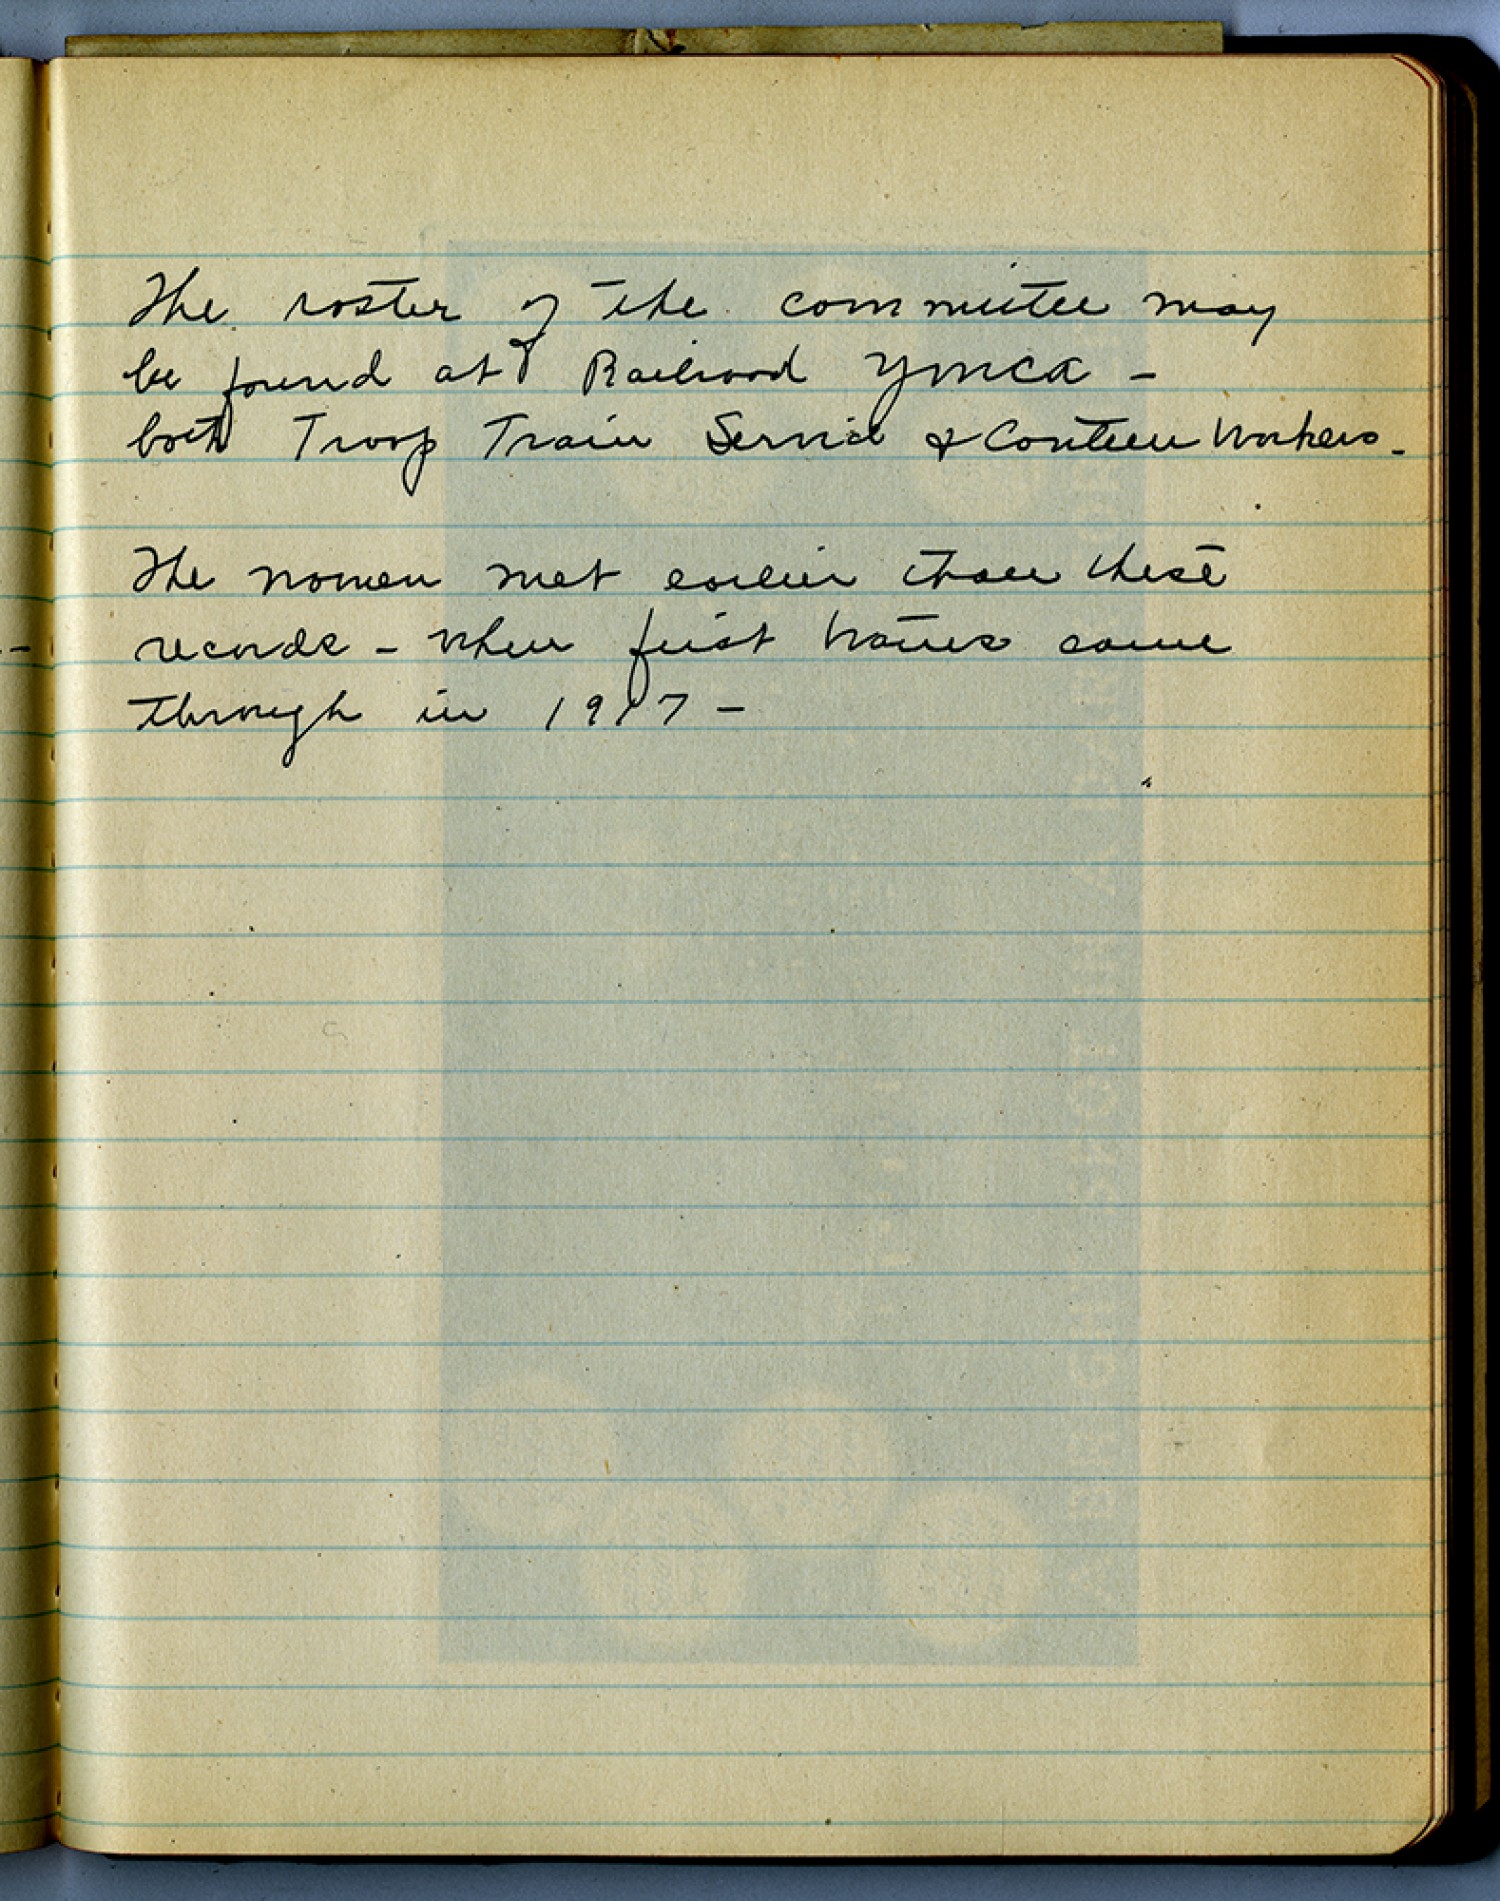 The roster of the committee may
be found at Railroad YMCA -
both Troop Train Service & Canteen Workers -
The women met earlier than these
records - when first trains came
through in 1917 -